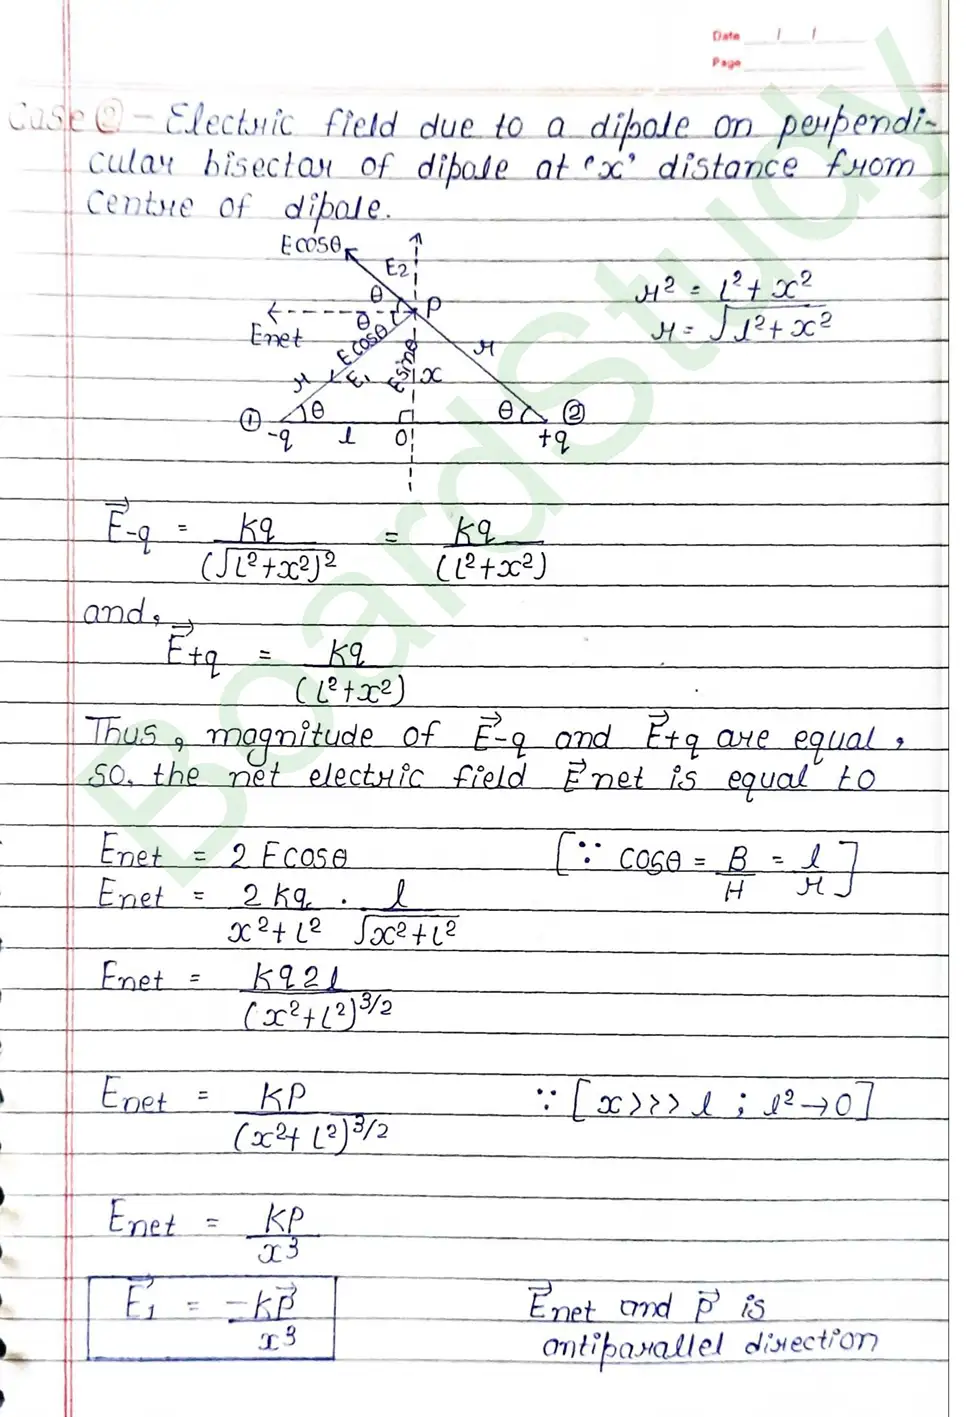 Date / /
Page
Case ② - Electric field due to a dipole on perpendi-
cular bisector of dipole at 'x' distance from
Centre of dipole.
Ecosθ
E2
θ
P
r² = l² + x²
r = √l² + x²
θ
Enet
Ecosθ
r
r
E₁
Esinθ
x
① θ θ ②
-q l O +q
E⃗-q = Kq/(√l²+x²)² = Kq/(l²+x²)
and,
E⃗+q = Kq/(l²+x²)
Thus, magnitude of E⃗-q and E⃗+q are equal,
so, the net electric field E⃗net is equal to
Enet = 2 Ecosθ [∵ cosθ = B/H = l/r]
Enet = 2Kq/x²+l² · l/√x²+l²
Enet = Kq2l/(x²+l²)^3/2
Enet = KP/(x²+l²)^3/2 ∵ [x>>> l ; l²→0]
Enet = KP/x³
E⃗₁ = -KP⃗/x³ E⃗net and p⃗ is
antiparallel direction
BoardStudy